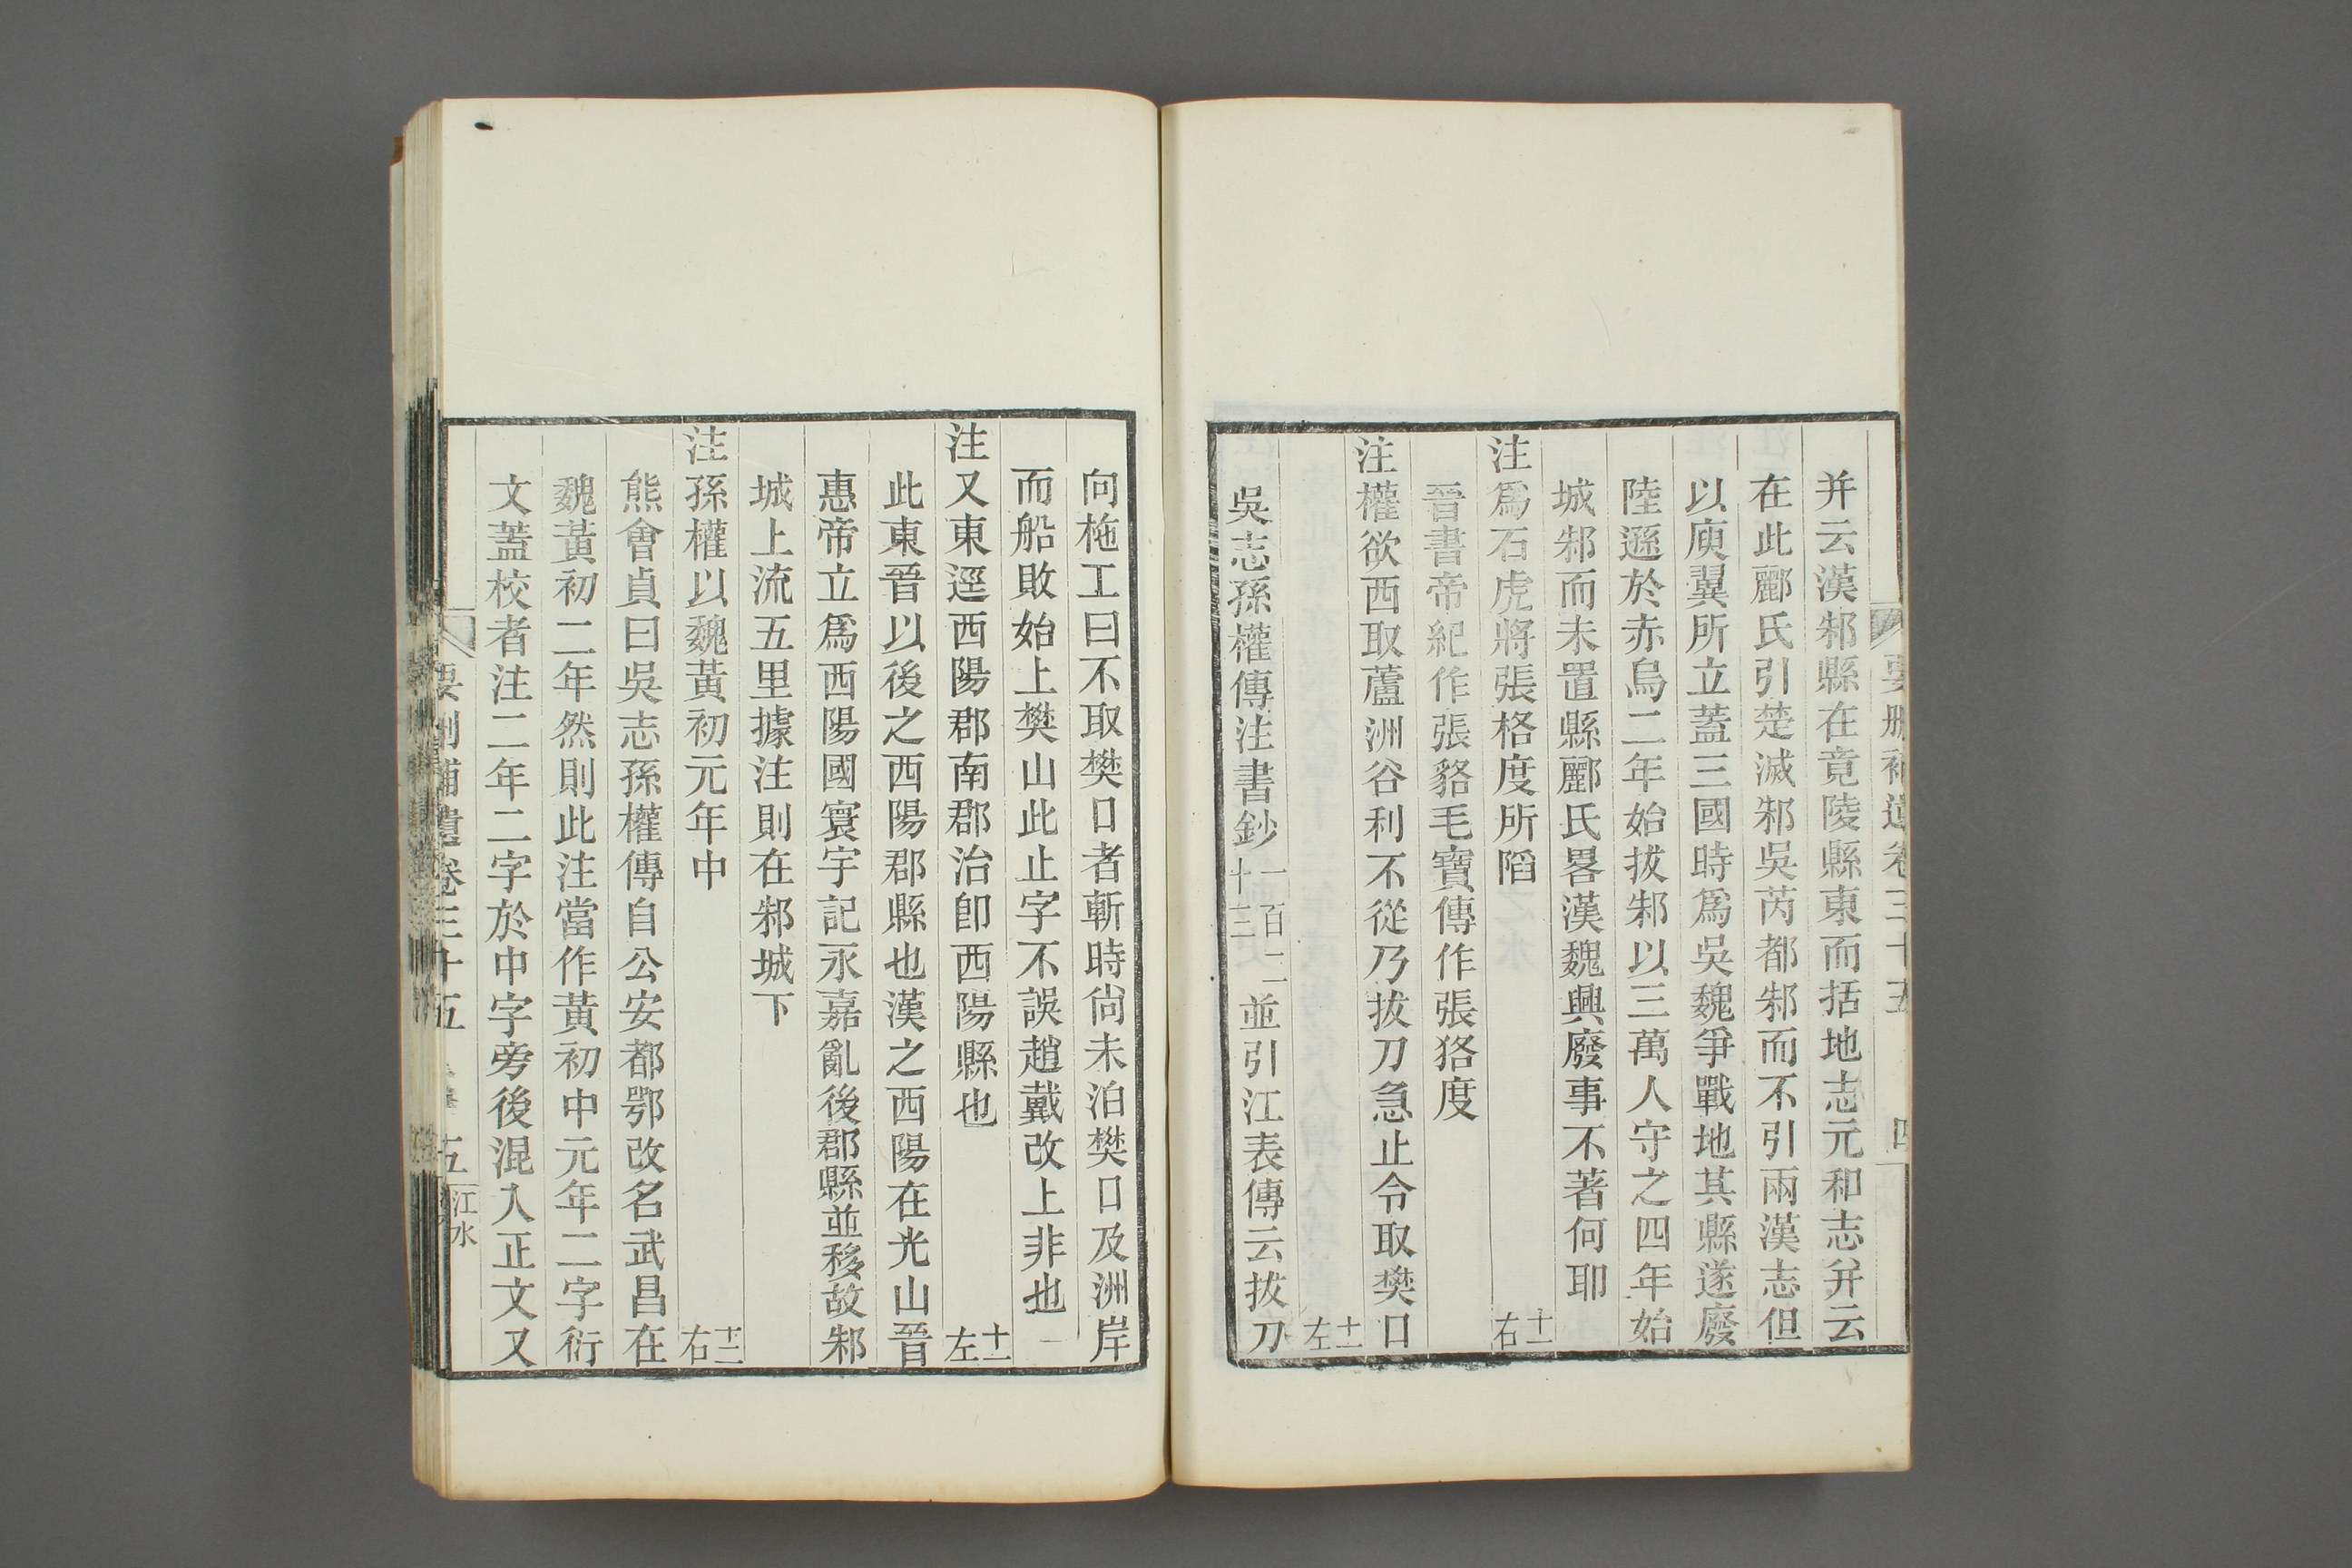 要刪補遺卷三十五　四
并云漢邾縣在竟陵縣東而括地志元和志并云
在此酈氏引楚滅邾吳芮都邾而不引兩漢志但
以庾翼所立蓋三國時爲吳魏爭戰地其縣遂廢
陸遜於赤烏二年始拔邾以三萬人守之四年始
城邾而未置縣酈氏畧漢魏興廢事不著何耶
注爲石虎將張格度所䧟　十一右
晉書帝紀作張貉毛寶傳作張狢度
注權欲西取蘆洲谷利不從乃拔刀急止令取樊口
十一左
吳志孫權傳注書鈔一百二十三並引江表傳云拔刀
向柂工曰不取樊口者斬時尙未泊樊口及洲岸
而船敗始上樊山此止字不誤趙戴改上非也
注又東逕西陽郡南郡治卽西陽縣也　十一左
此東晉以後之西陽郡縣也漢之西陽在光山晉
惠帝立爲西陽國寰宇記永嘉亂後郡縣並移故邾
城上流五里據注則在邾城下
注孫權以魏黃初元年中　十二右
熊會貞曰吳志孫權傳自公安都鄂改名武昌在
魏黃初二年然則此注當作黃初中元年二字衍
文蓋校者注二年二字於中字旁後混入正文又
要刪補遺卷三十五　五　江水